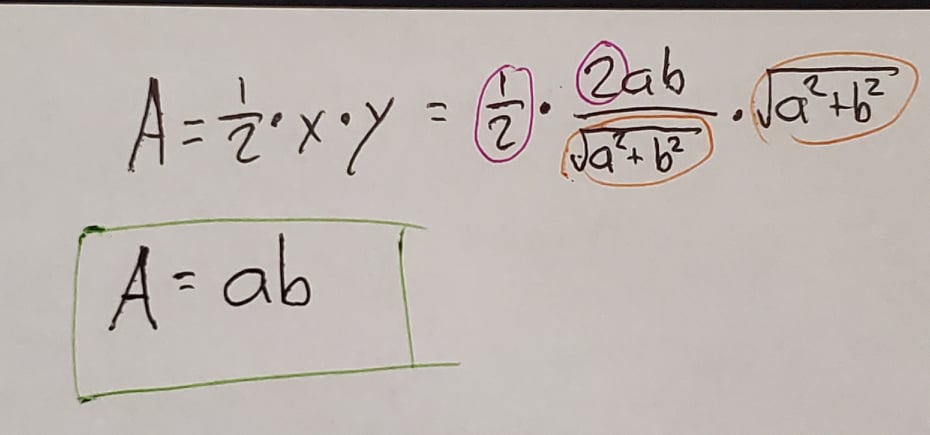 A = 1/2 · x · y = 1/2 · 2ab/√(a²+b²) · √(a²+b²)
A = ab